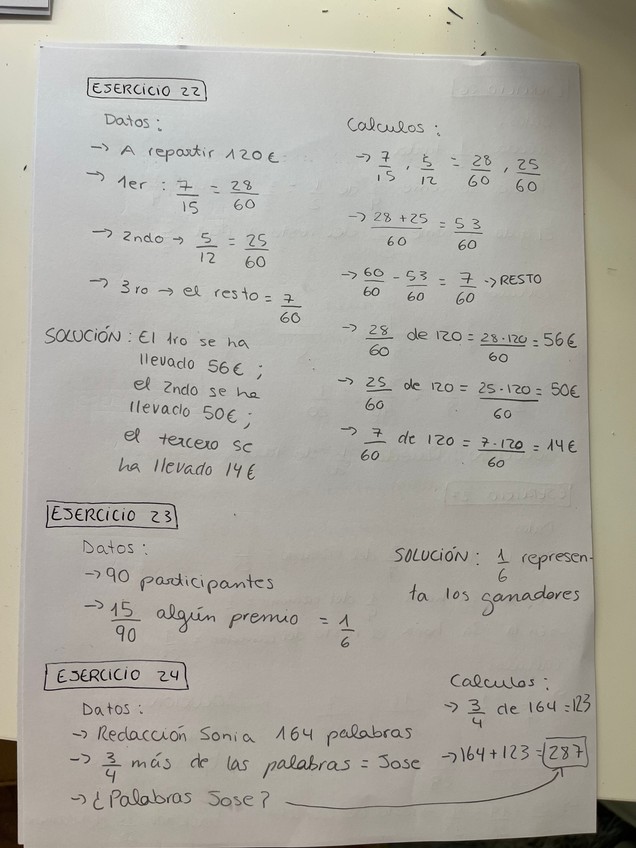 EJERCICIO 22
Datos:
→ A repartir 120€
→ 1er : 7/15 = 28/60
→ 2ndo → 5/12 = 25/60
→ 3ro → el resto = 7/60
SOLUCIÓN: El 1ro se ha
llevado 56€ ;
el 2ndo se ha
llevado 50€ ;
el tercero se
ha llevado 14€
Calculos :
→ 7/15 , 5/12 = 28/60 , 25/60
→ 28+25/60 = 53/60
→ 60/60 - 53/60 = 7/60 → RESTO
→ 28/60 de 120 = 28·120/60 = 56€
→ 25/60 de 120 = 25·120/60 = 50€
→ 7/60 de 120 = 7·120/60 = 14€
EJERCICIO 23
Datos:
→ 90 participantes
→ 15/90 algún premio = 1/6
SOLUCIÓN: 1/6 represen-
ta los ganadores
EJERCICIO 24
Datos:
→ Redacción Sonia 164 palabras
→ 3/4 más de las palabras = Jose
→ ¿Palabras Jose?
Calculos:
→ 3/4 de 164 = 123
→ 164 + 123 = 287